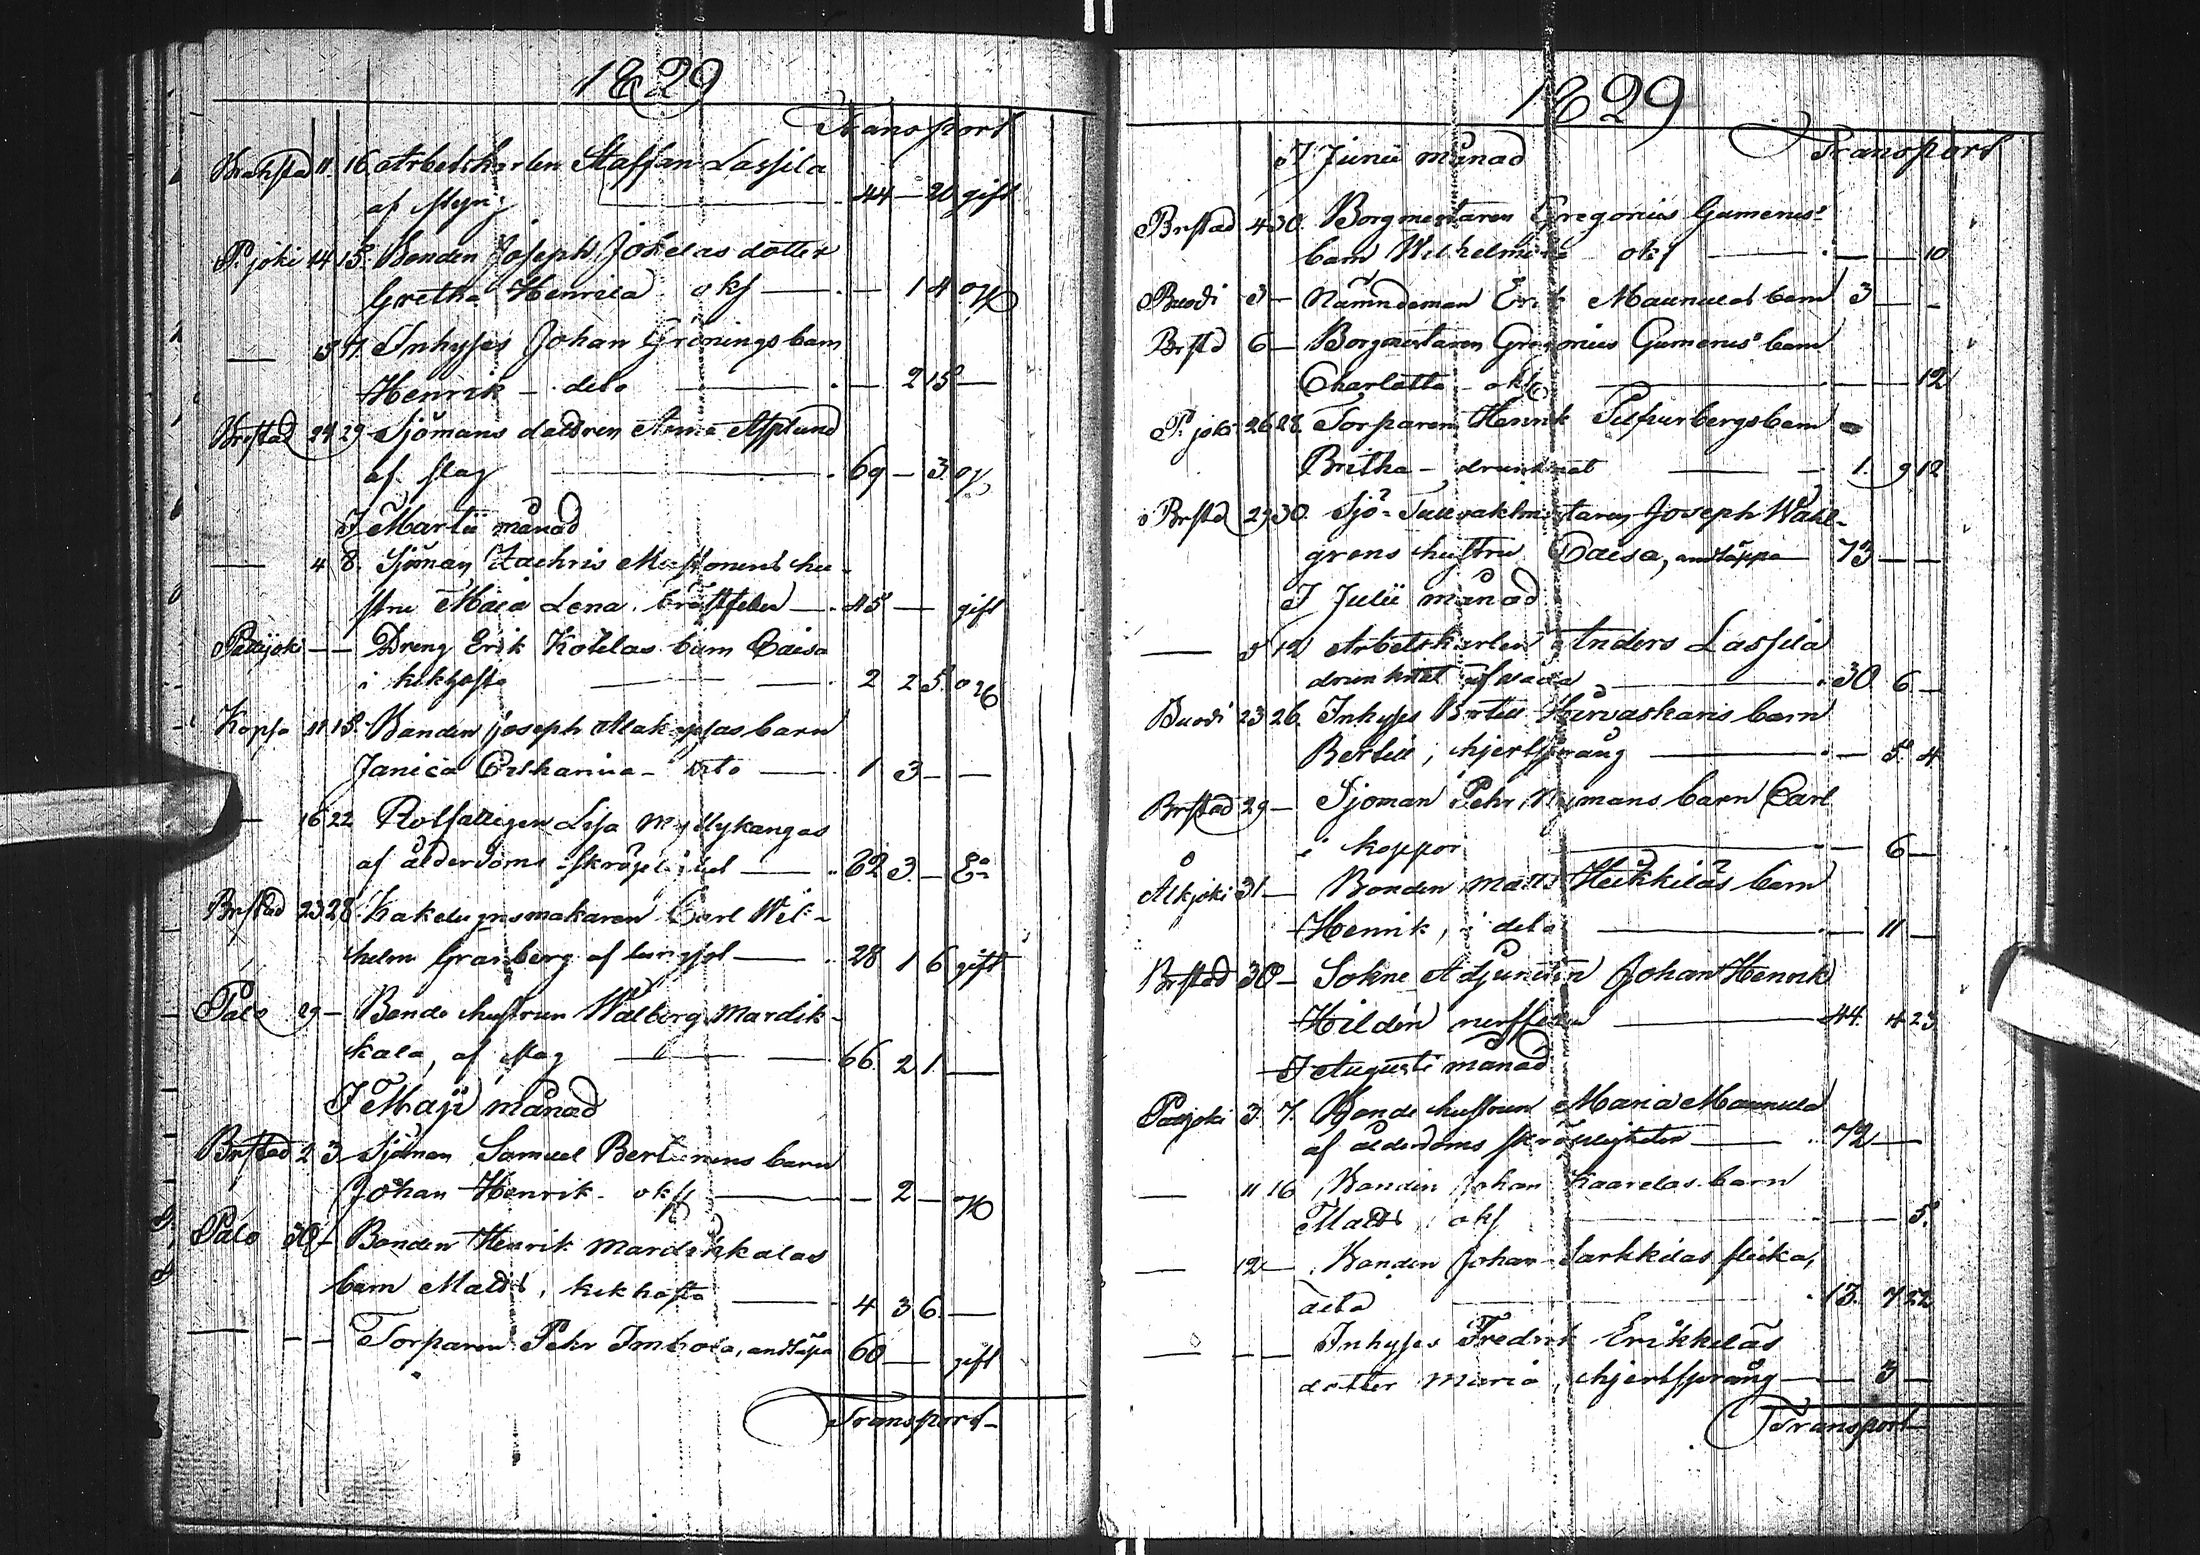 1829
Transport
Brahstad 11. 16. Arbetskarlen Staffan Lassila
af styng 44 — 20 gift
P. joki 14 15. Bonden Joseph Jokelas dotter
Gretha Henrica okf — — 1 4
— 15 17. Inhyses Johan Grönings barn
Henrik - dito — — 2 15 —
Brstad 24 29 Sjömans dottren Anna Asplund
af slag — 69 — 3.
I Martii månad
— 4 8. Sjöman Zachris hu-
stru Maja Lena, bröstfeber — 45 — gift
Pattijoki — — Dreng Erik Kotilas barn Caisa
i kikhosta — 2 2 5.
Kopsa 11 15. Bonden Joseph Alakopsas barn
Janica Catharina - dito — 1 3 — —
— 16 22 Rotfattigen Lisa Myllykangas
af ålderdoms skröplighet — 62 3. — E:a
Brstad 23 28. Kakelugnsmakaren Carl Wil-
helm Granberg af lungsot — 28 1 6 gift
Palo 29 — Bonde hustrun Walborg Mardik-
kala, af slag — 66. 2 1 —
I Maji månad
Brstad 2 3 Sjöman Samuel Bertunens barn
Johan Henrik - okf — — 2 —
Palo 30 — Bonden Henrik Mardikkalas
barn Matts, kikhosta — 4 3 6. —
— — — Torparen Pehr Imbola, andtäpa 60 — gift
Transport
1829
I Junii månad Transport
Brstad 4 30. Borgmestaren Gregorius Gumerus'
barn Wilhelmina okf — — — 10
Buodi 3 — Nämndeman Erik Maunulas barn 3 — —
Brstd 6 — Borgmestaren Gregorius Gumerus' barn
Charlotta - okf — — — 12
P. joki 26 28. Torparen Henrik barn
Britha - drunknat — 1. 9 12
Brstd 29 30. Sjö-Tullvaktmestaren Joseph Wahl-
grens hustru Caisa, andtäppa 73 — —
I Julii månad
— 5 12 Arbetskarlen Anders Lassila
drunknat af våda — 30 6. —
Buodi 23 26. Inhyses Bertill Hirvaskaris barn
Bertill, hjertsprång — — 5. 4
Brstad 29 — Sjöman Pehr Nymans barn Carl
i koppor — — 6 —
Alkjoki 31 — Bonden Matts Heikkiläs barn
Henrik, i dito — — 11 —
Brstad 30 — Sokne Adjuncten Johan Henrik
Hildén nerffeber — 44. 4 23
I Augusti månad
Pattjoki 3. 7. Bonde hustrun Maria Maunula
af ålderdoms skröpligheter — 72 —
— 11 16 Bonden Johan Kaarelas barn
Matts okf — — — 5.
— 12 — Bonden Johan Sarkkilas flicka,
dito — 13. 7 22
— — — Inhyses Fredrik Erikkiläs
dotter Maria, hjertsprång — — 3 —
Transport